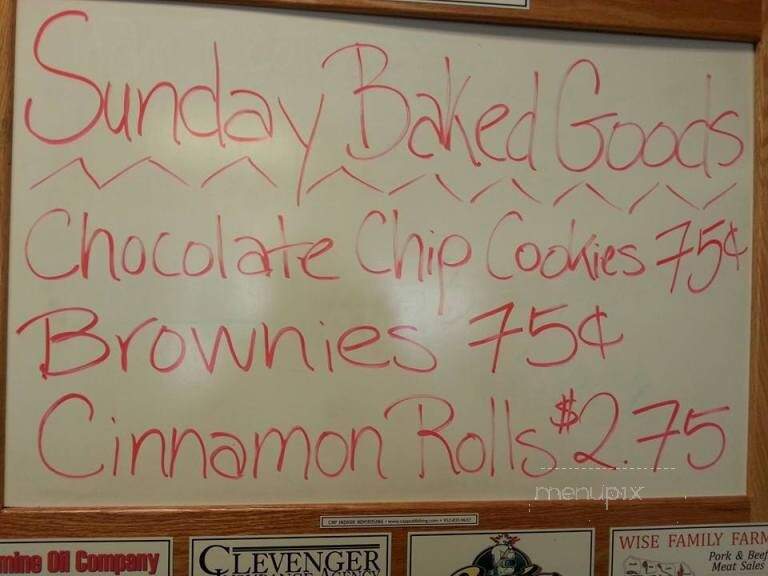 Sunday Baked Goods
Chocolate Chip Cookies 75¢
Brownies 75¢
Cinnamon Rolls $2.75
menupix
CNP INDOOR ADVERTISING
mine Oil Company
CLEVENGER
INSURANCE AGENCY
WISE FAMILY FARM
Pork & Beef
Meat Sales